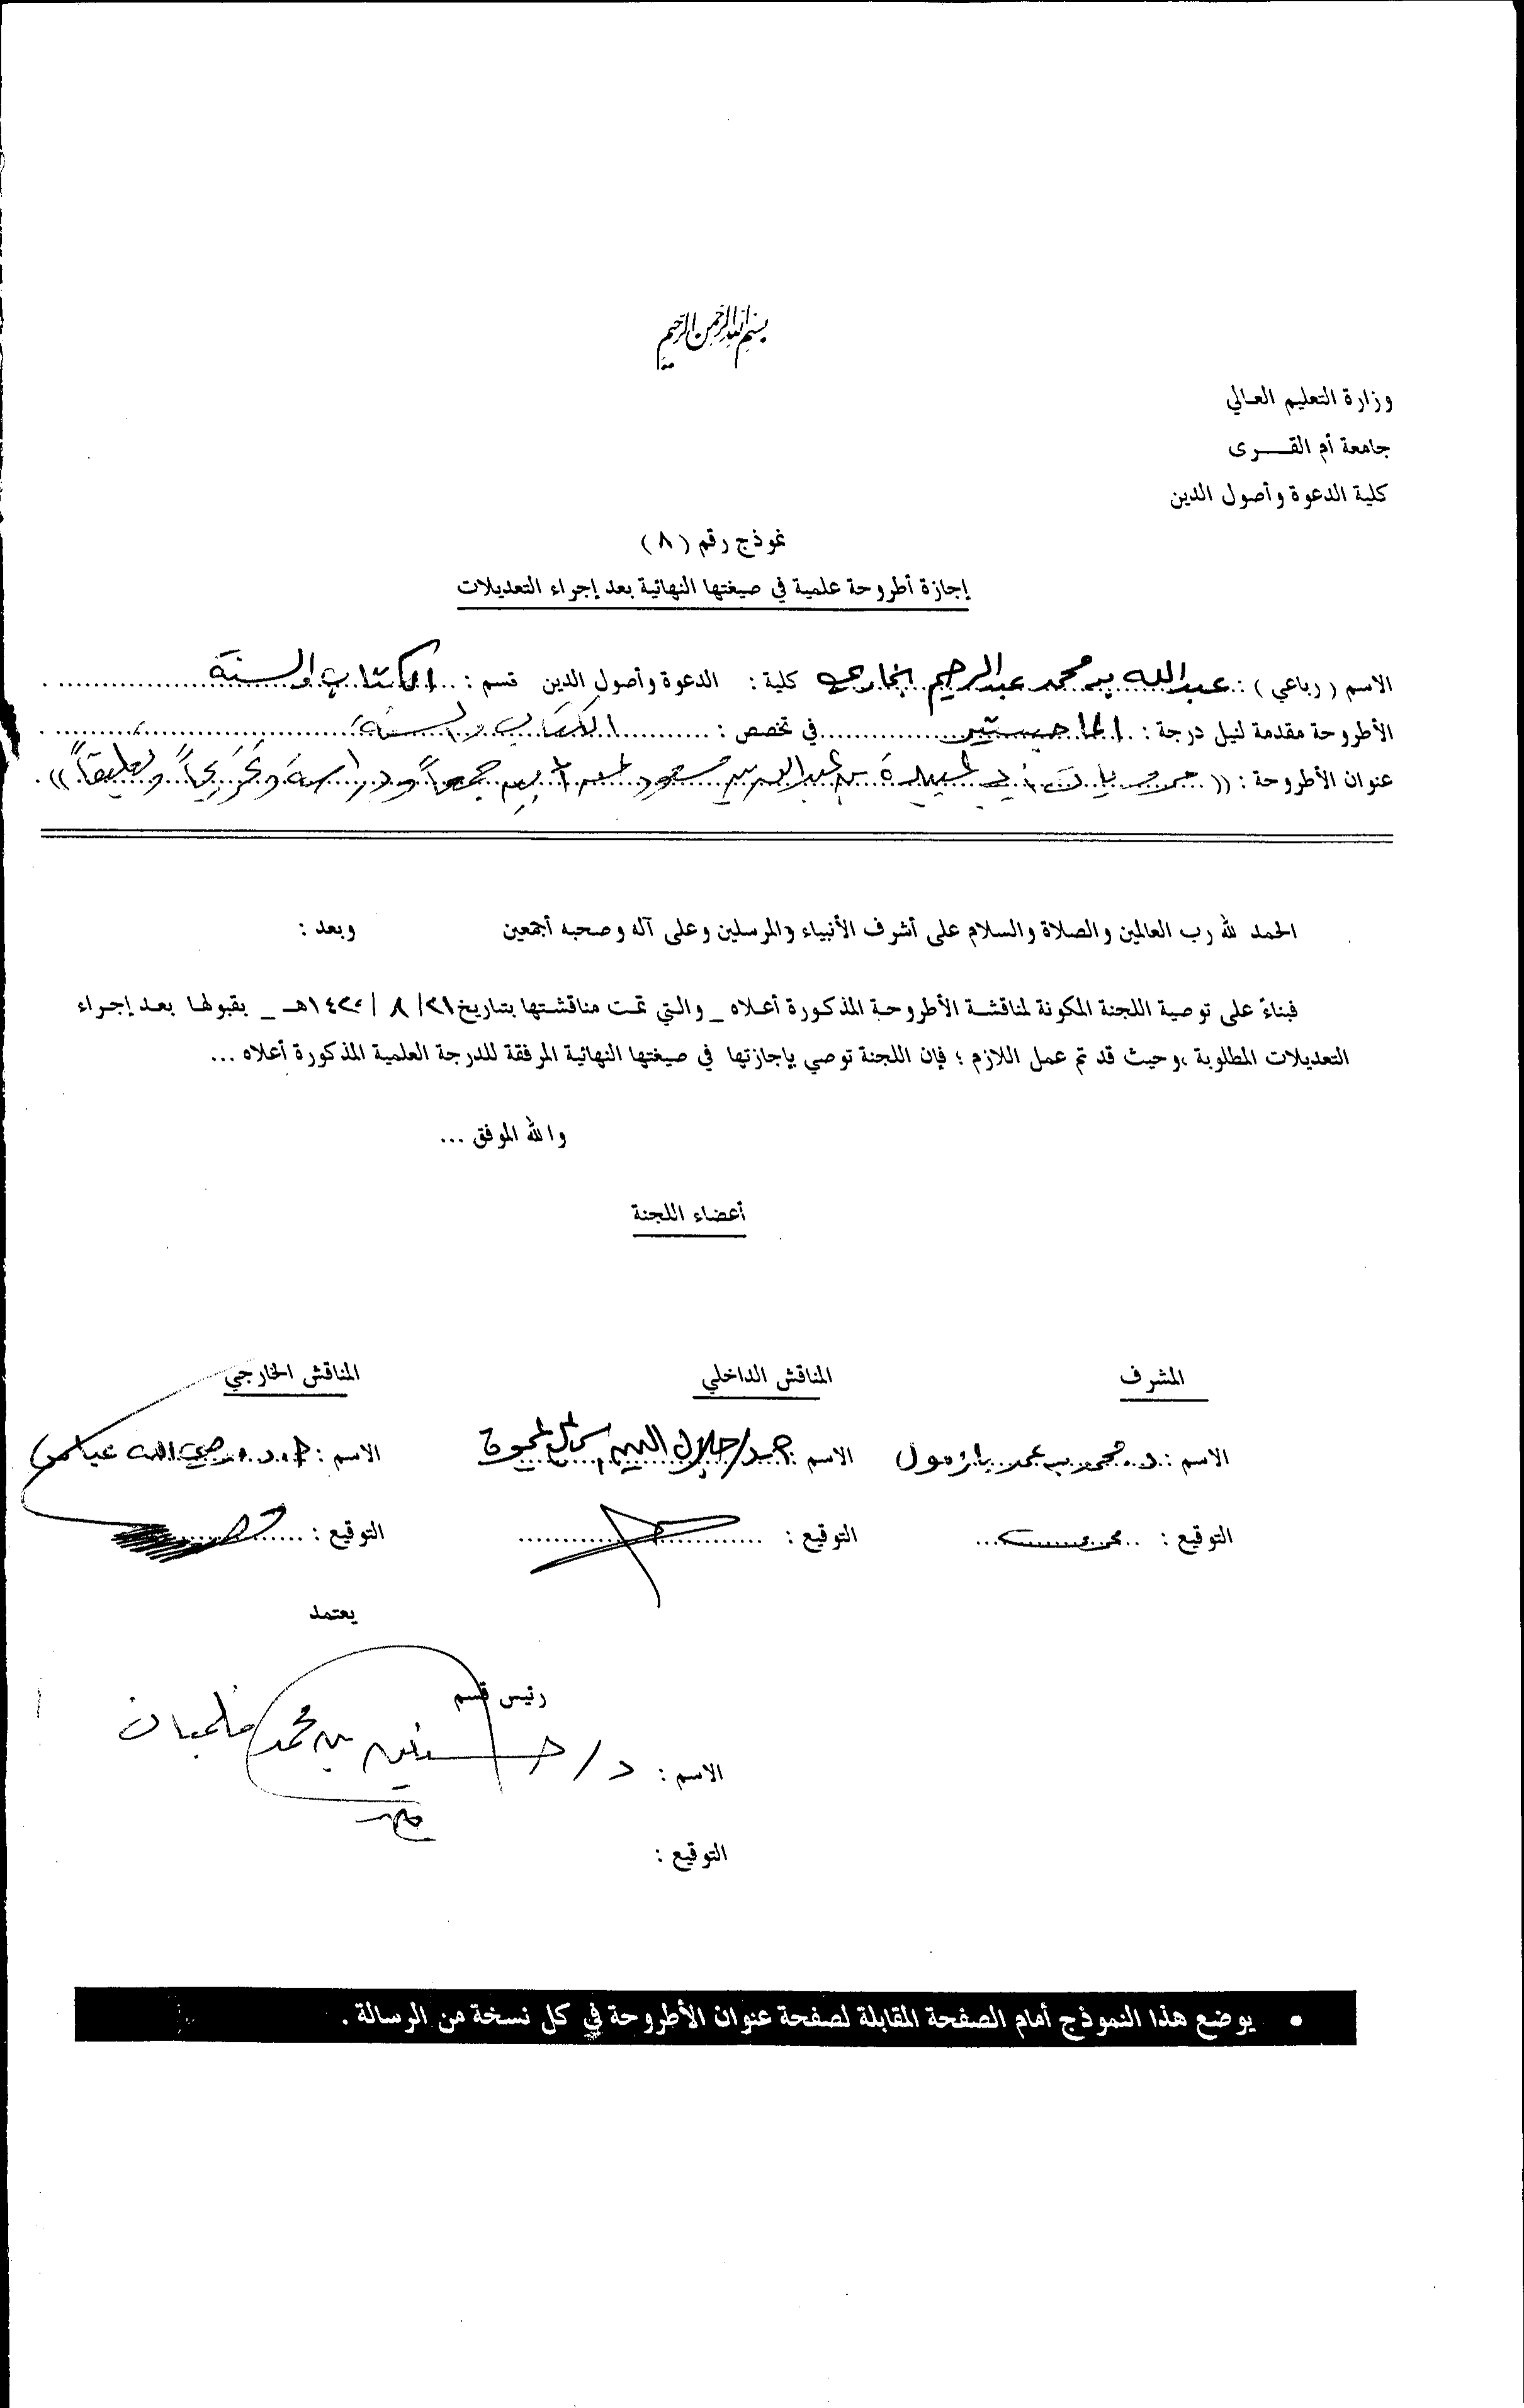 بسم الله الرحمن الرحيم
وزارة التعليم العالي
جامعة أم القــــرى
كلية الدعوة وأصول الدين
نموذج رقم ( ٨ )
إجازة أطروحة علمية في صيغتها النهائية بعد إجراء التعديلات
الاسم ( رباعي ) : عبدالله بن محمد عبدالرحيم بخاري كلية : الدعوة وأصول الدين قسم : الكتاب والسنة
الأطروحة مقدمة لنيل درجة : الماجستير في تخصص : الكتاب والسنة
عنوان الأطروحة : (( مرويات أبي عبيدة بن عبدالله بن مسعود عن أبيه جمعاً ودراسة وتخريجاً وتعليقاً )) .
الحمد لله رب العالمين والصلاة والسلام على أشرف الأنبياء والمرسلين وعلى آله وصحبه أجمعين وبعد :
فبناءً على توصية اللجنة المكونة لمناقشة الأطروحة المذكورة أعلاه _ والتي تمت مناقشتها بتاريخ ٢١/ ٨ / ١٤٢٢هـ _ بقبولها بعد إجراء
التعديلات المطلوبة ، وحيث قد تم عمل اللازم ؛ فإن اللجنة توصي بإجازتها في صيغتها النهائية المرفقة للدرجة العلمية المذكورة أعلاه ...
والله الموفق ...
أعضاء اللجنة
المشرف المناقش الداخلي المناقش الخارجي
الاسم : د. محمد بن عمر بازمول الاسم : جلال الدين الاسم : أ.د. وصي الله عباس
التوقيع : التوقيع : التوقيع :
يعتمد
رئيس قسم
الاسم : د/ بن محمد فلمبان
التوقيع :
• يوضع هذا النموذج أمام الصفحة المقابلة لصفحة عنوان الأطروحة في كل نسخة من الرسالة .